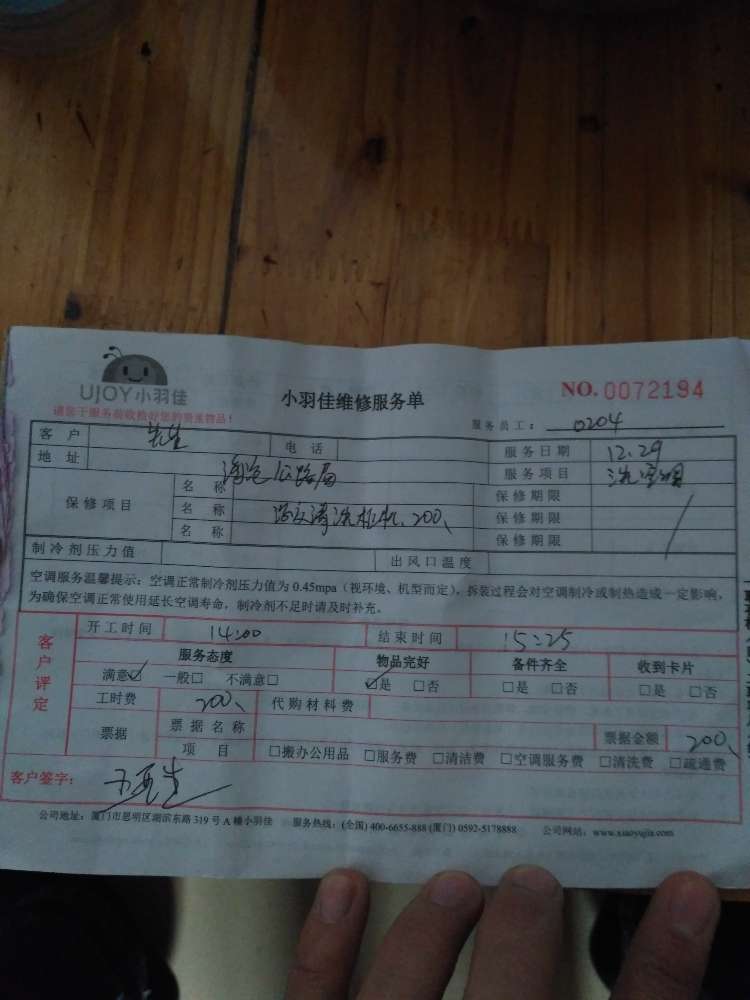 UJOY小羽佳
小羽佳维修服务单
NO. 0072194
请您于服务前收检好您的贵重物品!
服务员工: 0204
客户 先生 电话 服务日期 12.29
地址 公路局 服务项目 洗空调
保修项目 名称 保修期限
名称 清洗柜机 200、 保修期限
名称 保修期限
制冷剂压力值 出风口温度
空调服务温馨提示:空调正常制冷剂压力值为 0.45mpa(视环境、机型而定),拆装过程会对空调制冷或制热造成一定影响,
为确保空调正常使用延长空调寿命,制冷剂不足时请及时补充。
客户评定
开工时间 14:00 结束时间 15:25
服务态度 物品完好 备件齐全 收到卡片
满意☑ 一般□ 不满意□ ☑是 □否 □是 □否 □是 □否
工时费 200、 代购材料费
票据 票据名称 票据金额 200、
项目 □搬办公用品 □服务费 □清洁费 □空调服务费 □清洗费 □疏通费
客户签字:
公司地址:厦门市思明区湖滨东路 319 号 A 幢小羽佳 服务热线:(全国) 400-6655-888 (厦门) 0592-5178888 公司网站:www.xiaoyujia.com